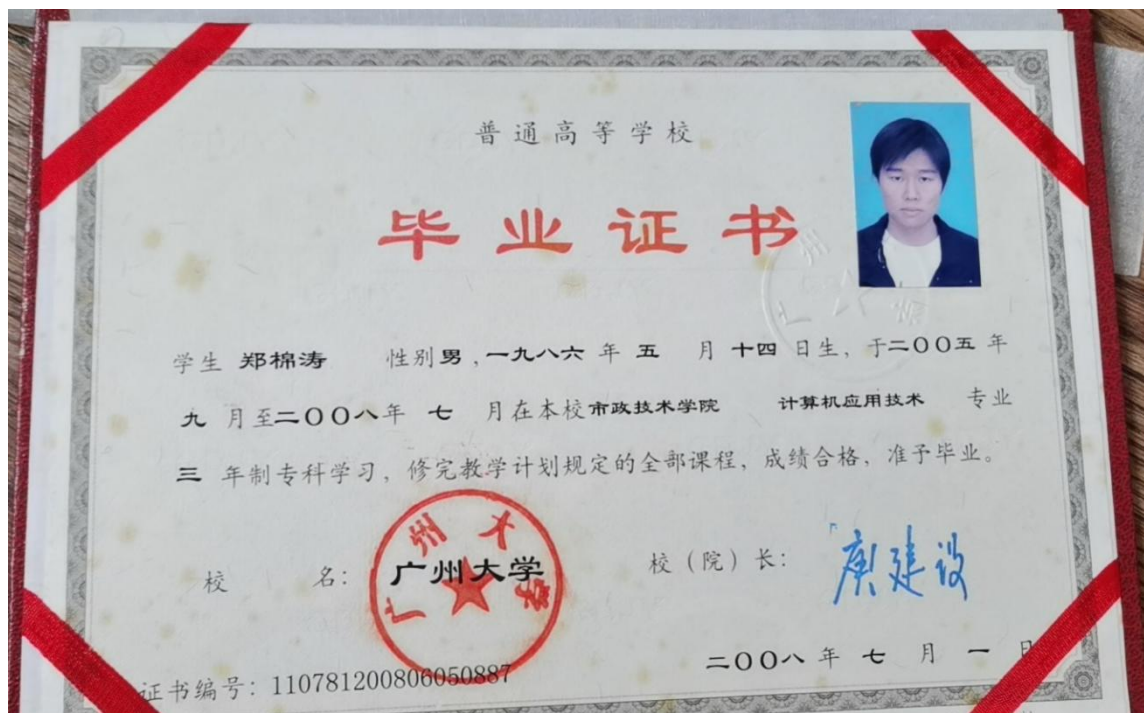 普通高等学校
毕业证书
学生 郑棉涛 性别男,一九八六 年 五 月 十四 日生,于二〇〇五 年
九 月至二〇〇八年 七 月在本校市政技术学院 计算机应用技术 专业
三 年制专科学习,修完教学计划规定的全部课程,成绩合格,准予毕业。
校 名: 广州大学 校(院)长: 庾建设
广州大学
二〇〇八 年 七 月 一 日
证书编号:110781200806050887